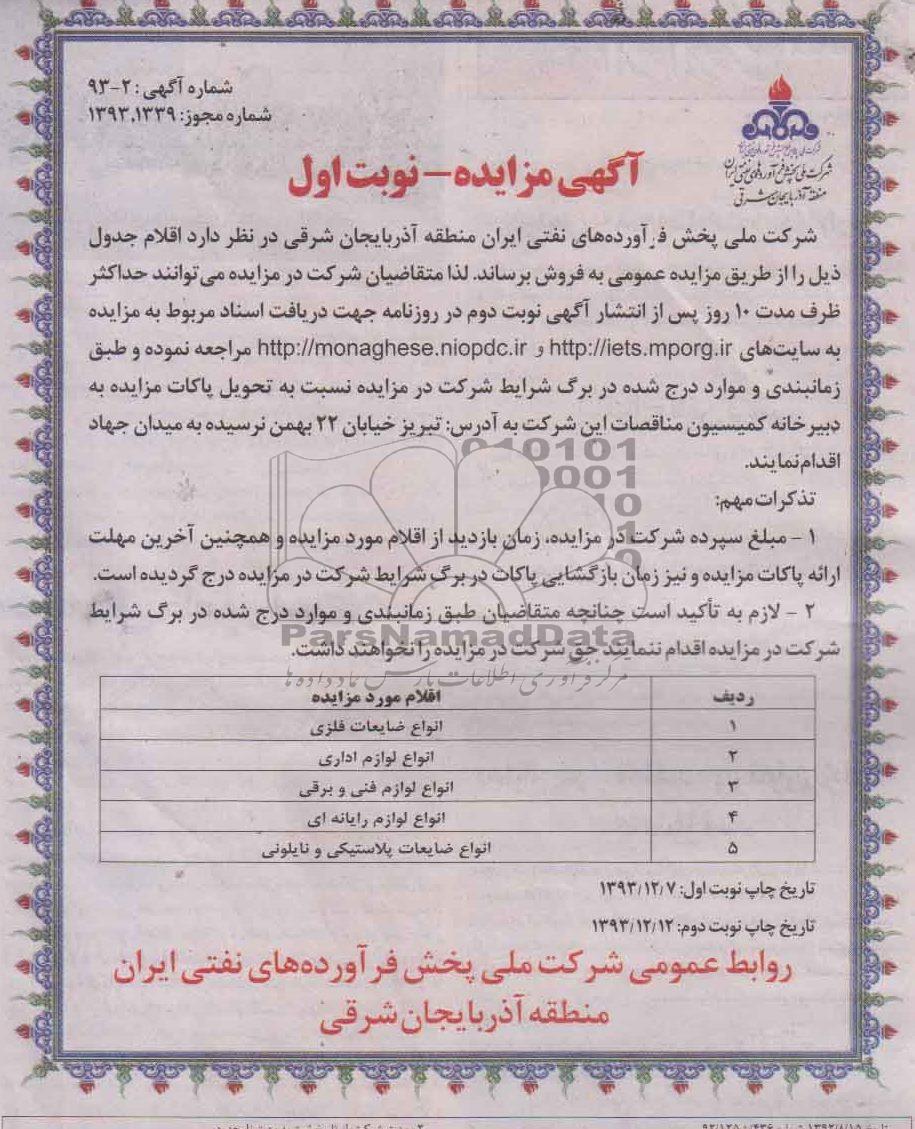 شماره آگهی: ۲-۹۳
شماره مجوز: ۱۳۹۳،۱۳۳۹
شرکت ملی پخش فرآورده‌های نفتی ایران
منطقه آذربایجان شرقی
آگهی مزایده - نوبت اول
شرکت ملی پخش فرآورده‌های نفتی ایران منطقه آذربایجان شرقی در نظر دارد اقلام جدول
ذیل را از طریق مزایده عمومی به فروش برساند. لذا متقاضیان شرکت در مزایده می‌توانند حداکثر
ظرف مدت ۱۰ روز پس از انتشار آگهی نوبت دوم در روزنامه جهت دریافت اسناد مربوط به مزایده
به سایت‌های http://iets.mporg.ir و http://monaghese.niopdc.ir مراجعه نموده و طبق
زمانبندی و موارد درج شده در برگ شرایط شرکت در مزایده نسبت به تحویل پاکات مزایده به
دبیرخانه کمیسیون مناقصات این شرکت به آدرس: تبریز خیابان ۲۲ بهمن نرسیده به میدان جهاد
اقدام نمایند.
تذکرات مهم:
۱ - مبلغ سپرده شرکت در مزایده، زمان بازدید از اقلام مورد مزایده و همچنین آخرین مهلت
ارائه پاکات مزایده و نیز زمان بازگشایی پاکات در برگ شرایط شرکت در مزایده درج گردیده است.
۲ - لازم به تأکید است چنانچه متقاضیان طبق زمانبندی و موارد درج شده در برگ شرایط
شرکت در مزایده اقدام ننمایند حق شرکت در مزایده را نخواهند داشت.
ParsNamadData
مرکز فرآوری اطلاعات پارس نماد داده ها
ردیف اقلام مورد مزایده
۱ انواع ضایعات فلزی
۲ انواع لوازم اداری
۳ انواع لوازم فنی و برقی
۴ انواع لوازم رایانه ای
۵ انواع ضایعات پلاستیکی و نایلونی
تاریخ چاپ نوبت اول: ۱۳۹۳/۱۲/۷
تاریخ چاپ نوبت دوم: ۱۳۹۳/۱۲/۱۲
روابط عمومی شرکت ملی پخش فرآورده‌های نفتی ایران
منطقه آذربایجان شرقی